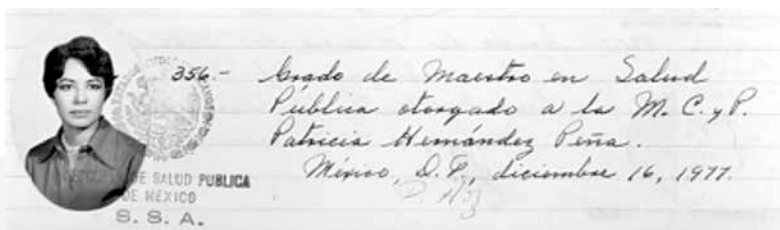 356.- Grado de Maestro en Salud
Pública otorgado a la M. C. y P.
Patricia Hernández Peña.
México, D. F., diciembre 16, 1977.
DE SALUD PUBLICA
DE MEXICO
S. S. A.